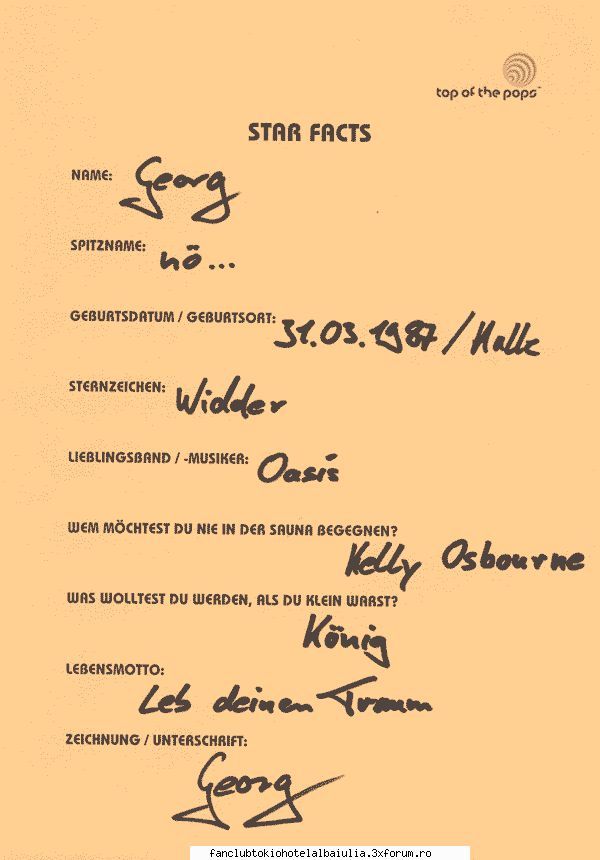 top of the pops
STAR FACTS
NAME: Georg
SPITZNAME: nö...
GEBURTSDATUM / GEBURTSORT: 31.03.1987 / Halle
STERNZEICHEN: Widder
LIEBLINGSBAND / -MUSIKER: Oasis
WEM MÖCHTEST DU NIE IN DER SAUNA BEGEGNEN?
Kelly Osbourne
WAS WOLLTEST DU WERDEN, ALS DU KLEIN WARST?
König
LEBENSMOTTO:
Leb deinen Traum
ZEICHNUNG / UNTERSCHRIFT:
Georg
fanclubtokiohotelalbaiulia.3xforum.ro